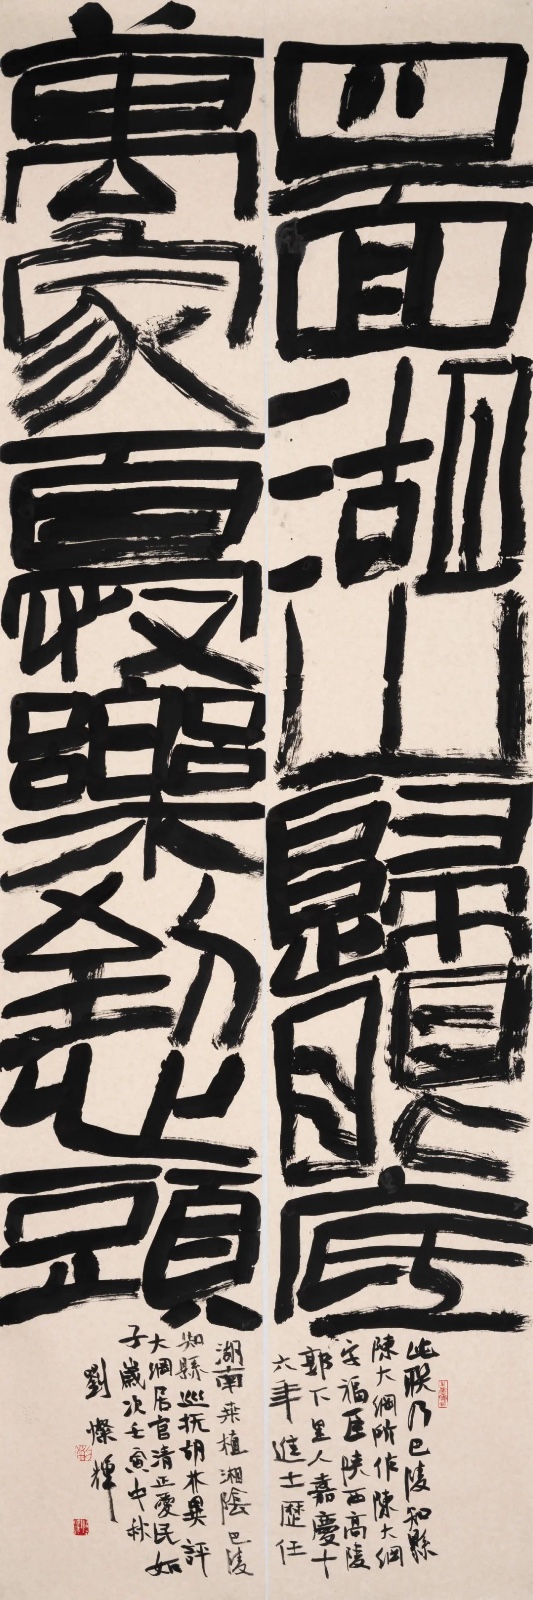 四面湖山歸眼底
萬家憂樂到心頭
此联乃巴陵知縣
陳大綱所作陳大綱
字福臣陕西高陵
郭下里人嘉慶十
六年進士歷任
湖南桑植湘陰巴陵
知縣巡抚胡林異評
大綱居官清正愛民如
子歲次壬寅中秋
劉燦輝